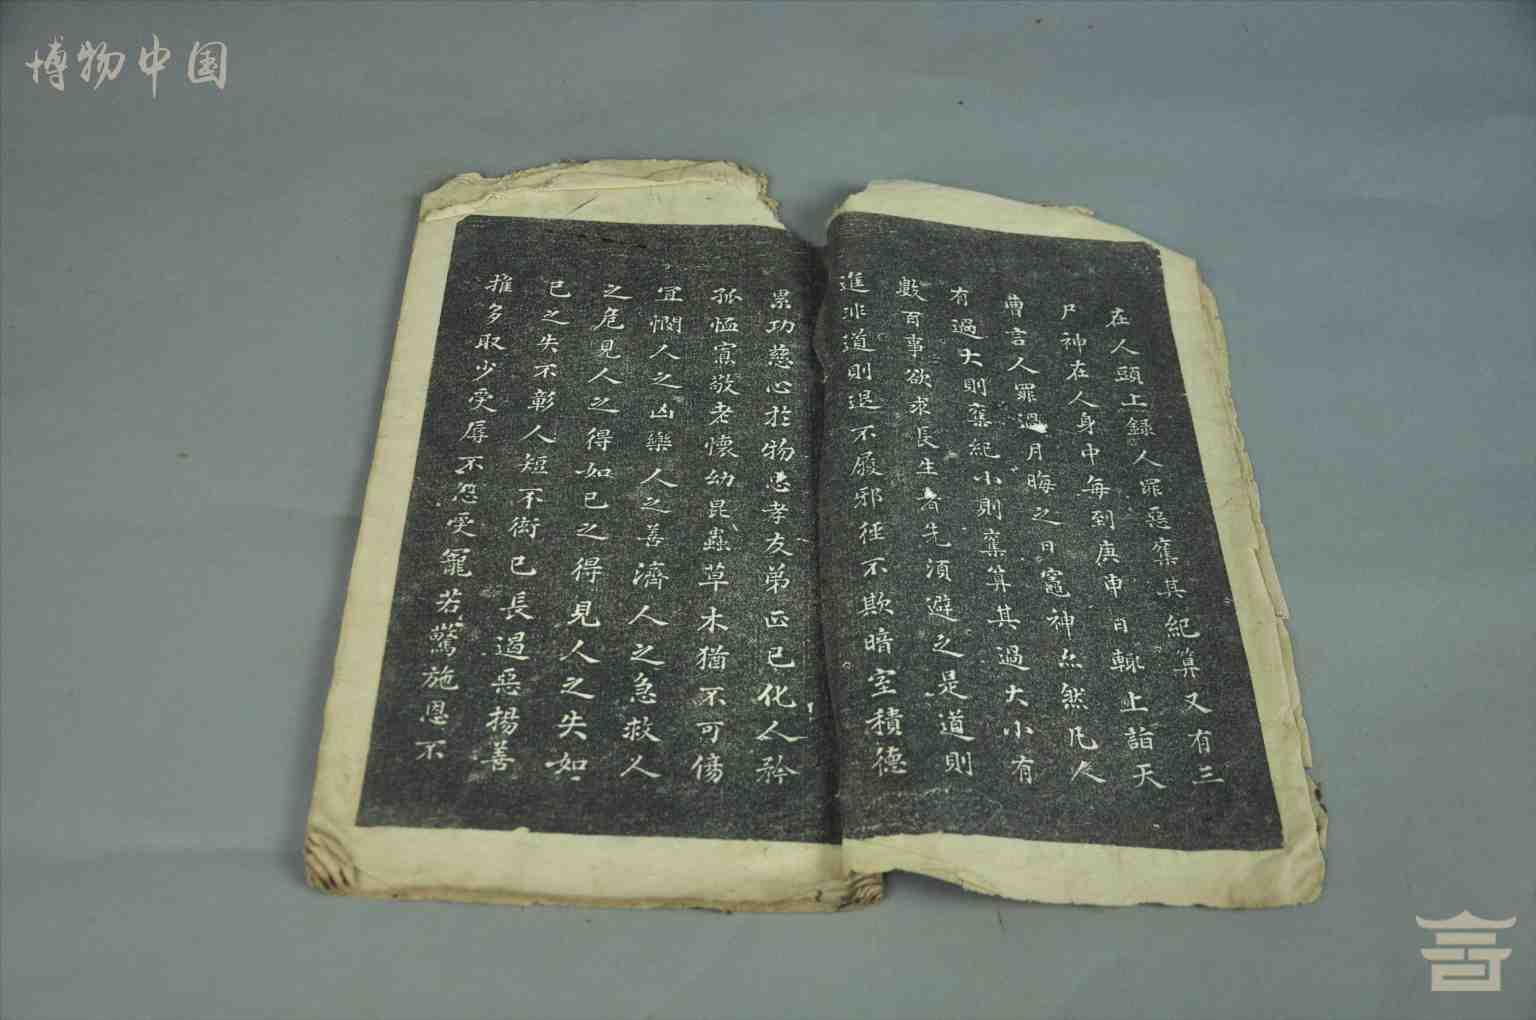 博物中国
在人頭上錄人罪惡奪其紀算又有三
尸神在人身中每到庚申日輙上詣天
曹言人罪過月晦之日竈神亦然凡人
有過大則奪紀小則奪算其過大小有
數百事欲求長生者先須避之是道則
進非道則退不履邪徑不欺暗室積德
累功慈心於物忠孝友弟正己化人矜
孤恤寡敬老懷幼昆蟲草木猶不可傷
宜憫人之凶樂人之善濟人之急救人
之危見人之得如己之得見人之失如
己之失不彰人短不衒己長遏惡揚善
推多取少受辱不怨受寵若驚施恩不